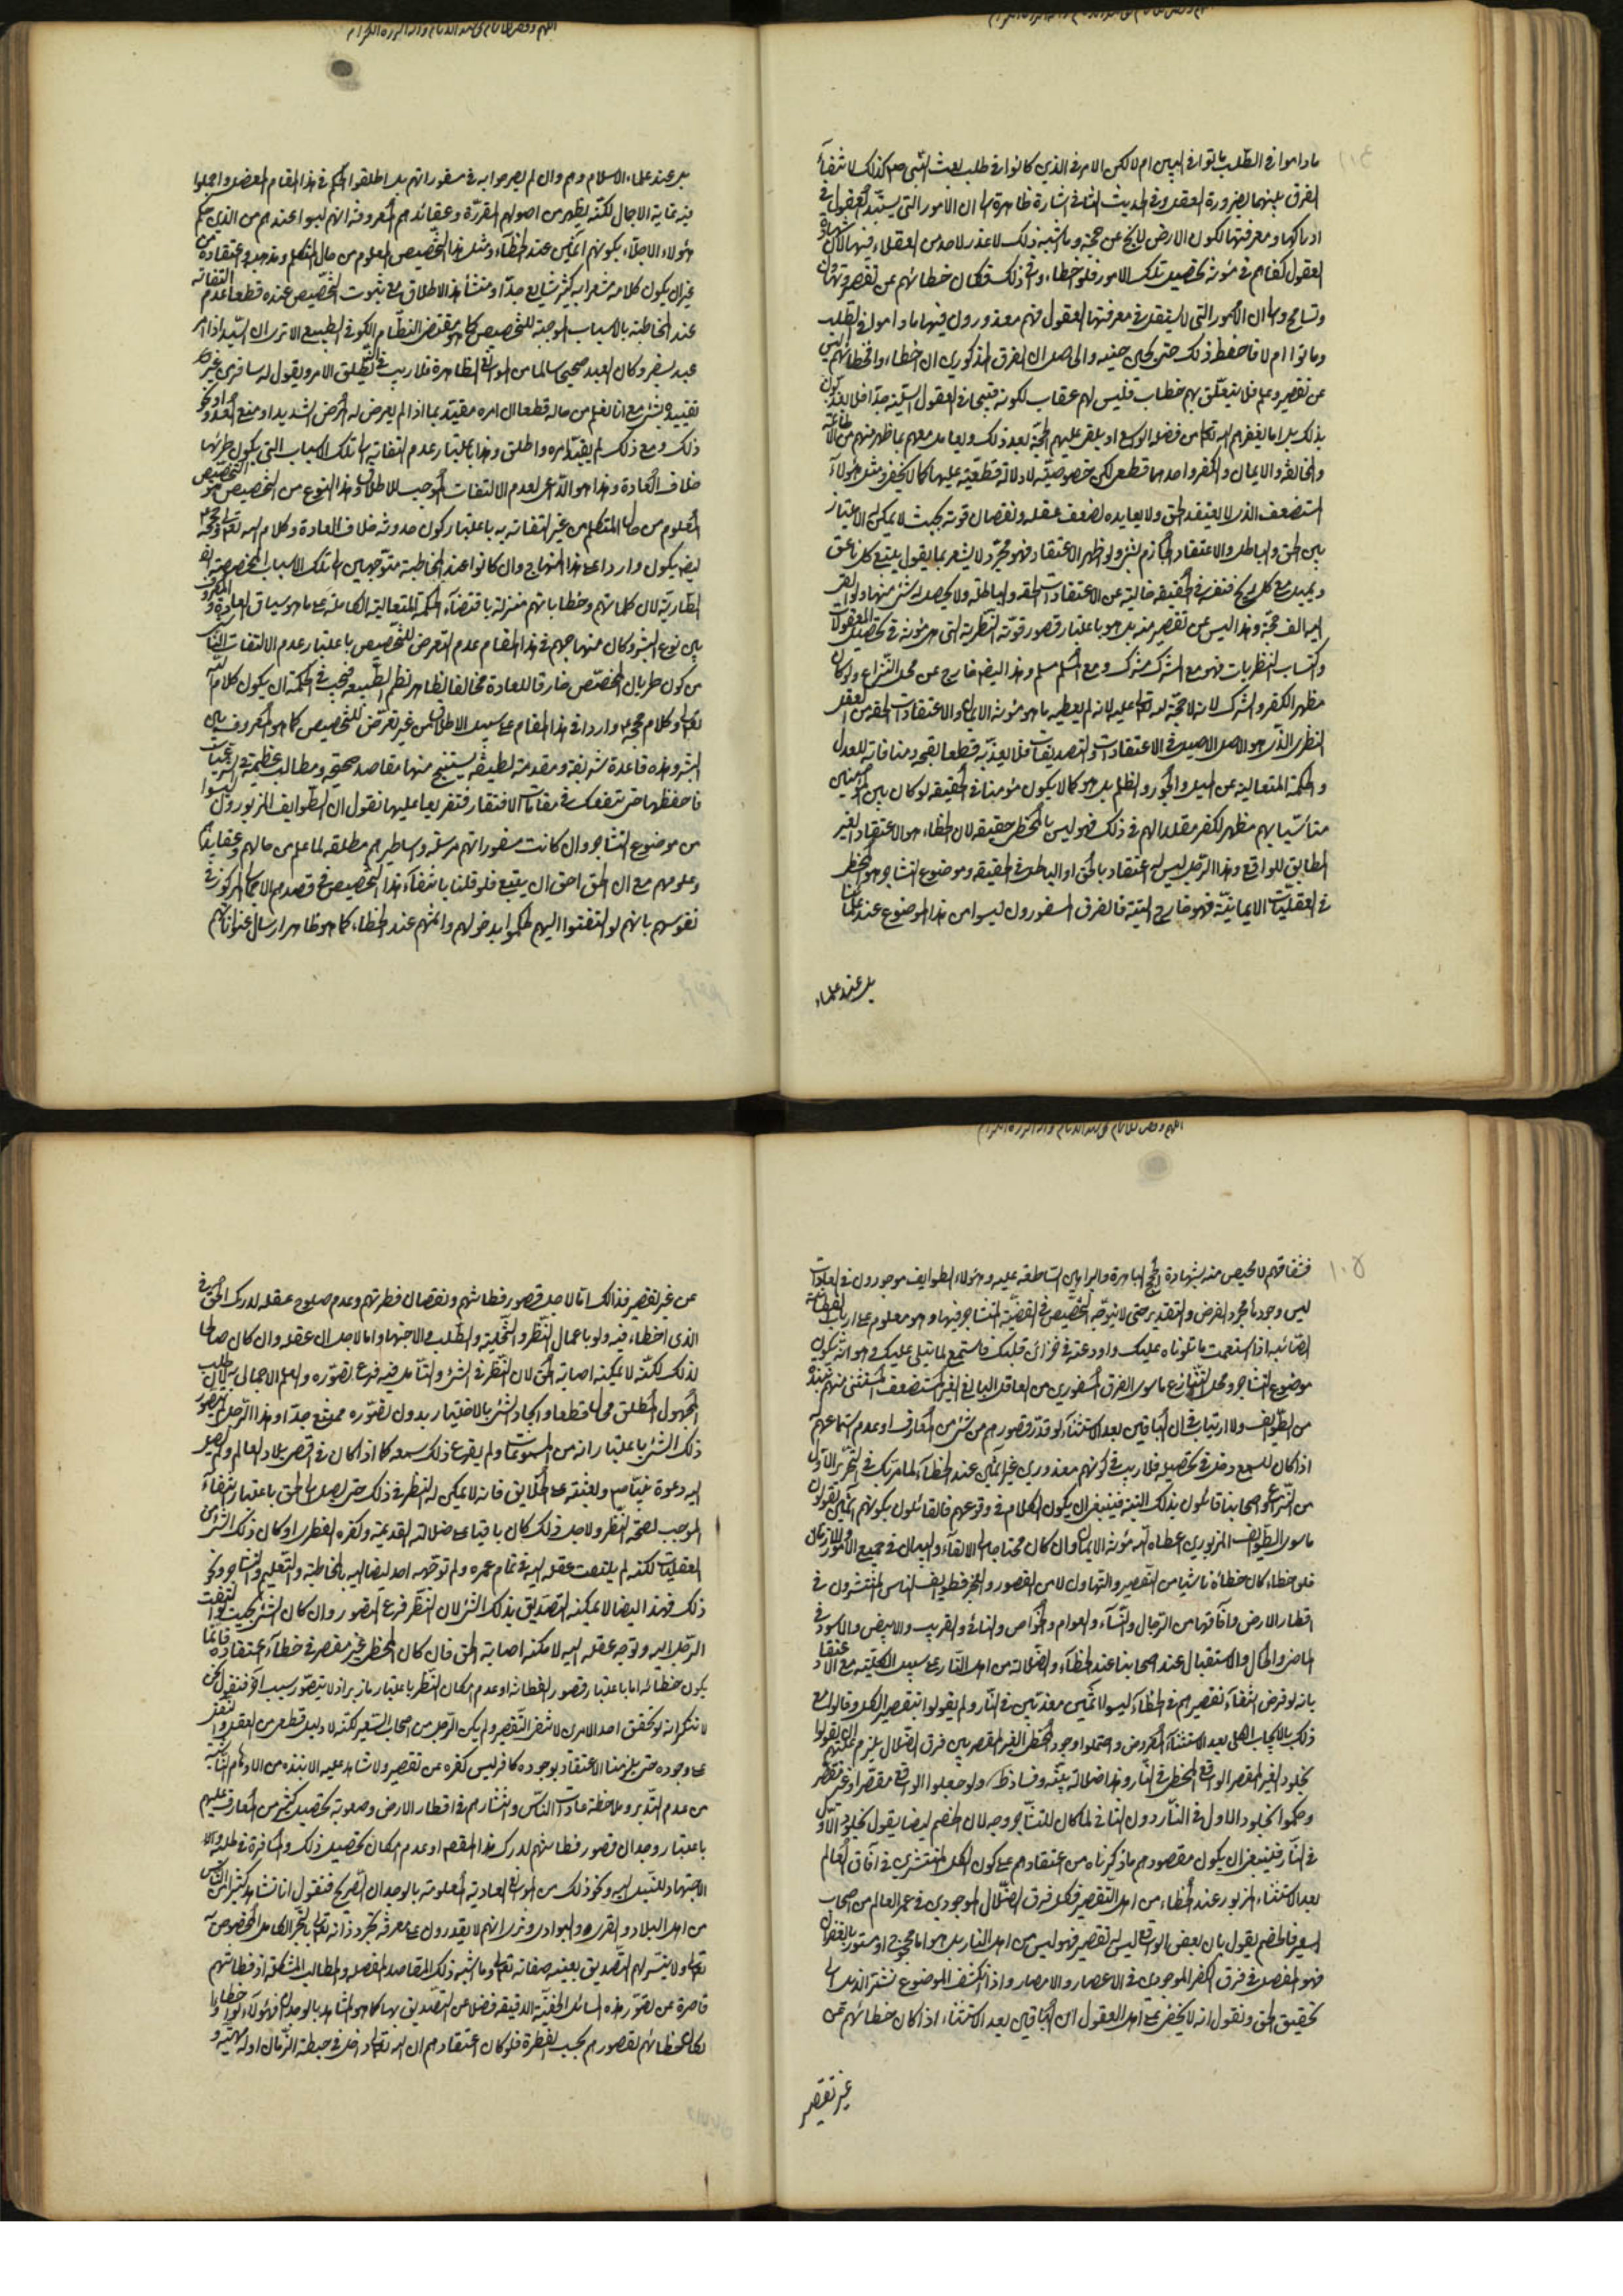 ماداموا فى الطلب ماتوا فى البين ام لا لكن الامر فى الذين كانوا فى طلب بعث النبى صم كذلك لانتفاء
الفرق بينهما بضرورة العقل وفى الحديث الثانى اشارة ظاهرة الى ان الامور التى يستبد العقول فى
ادراكها ومعرفتها لكون الارض لا يخ عن حجة وما اشبه ذلك لا عذر لاحد من العقلاء فيها لان شهادة
العقول كفاهم فى مؤنة تحصيل تلك الامور فلو اخطاءوا فى ذلك فكان خطائهم عن تقصير وتهاون
وتسامح والى ان الامور التى لا يستقل فى معرفتها العقول فهم معذورون فيها ماداموا فى الطلب
وماتوا ام لا فاحفظ ذلك حتى يحين حينه والحاصل ان الفرق المذكورين ان اخطاءوا فخطائهم ليس
عن تقصير وعلم فلا يتعلق بهم خطاب فليس لهم عقاب لكونه قبيحا فى العقول السليمة جدا فلا يعذبون
بذلك بل اما يغفرهم الله تعالى من فضله الواسع او يلقى عليهم الحجة بعد ذلك ويعامل معهم بما ظهر منهم من الاطاعة
والمخالفة والايمان والكفر واحدهما قطعى لكن خصوصيته لا دلالة قطعية عليها كما لا يخفى ومثل هؤلاء
المستضعف الذى لا يعتقد الحق ولا يعانده لضعف عقله ونقصان قوته بحيث لا يمكن له الامتياز
بين الحق والباطل والاعتقاد الجازم بشئ ولو اظهر الاعتقاد فهو مجرد لا يشعر بما يقول يتبع كل ناعق
ويميل مع كل ريح فنفسه فى الحقيقة خالية عن الاعتقادات الحقة والباطلة ولا يحصل له شئ منها ولو القى
اليه الف حجة وهذا ليس عن تقصير منه بل هو باعتبار قصور قوته النظرية التى هى مؤنة فى تحصيل المعقولات
واكتساب النظريات فهو مع المشرك مشرك ومع المسلم مسلم وهذا ايضا خارج عن محل النزاع ولو كان
مظهر الكفر والشرك لانه لا حجة لله تعالى عليه لانه لم يعطيه ما هو مؤنة الايمان والاعتقادات الحقة من العقل
النظرى الذى هو الاصل الاصيل فى الاعتقادات والتصديقات فلا يعذبه قطعا لقبحه ومنافاته للعدل
والحكمة المتعالية عن الميل والجور والظلم بل هو كما لا يكون مؤمنا فى الحقيقة لو كان بين المؤمنين
متاسيا بهم مظهر الكفر مقلدا لهم فى ذلك فهو ليس بالمخطى حقيقة لان الخطاء هو الاعتقاد الغير
المطابق للواقع وهذا الرجل ليس له اعتقاد بالحق او الباطل فى الحقيقة وموضوع التشاجر هو المخطى
فى العقليات الايمانية فهو خارج البتة فالفرق المسفورون ليسوا من هذا الموضوع عند علمائنا
بل عند علماء
بل عند علماء الاسلام وهم وان لم يصرحوا به فى مسفوراتهم بل اطلقوا الحكم فى هذا المقام المعضل واجملوا
فيه غاية الاجمال لكنه يظهر من اصولهم المقررة وعقائدهم المعروفة انهم ليسوا عندهم من الذين حكم
هؤلاء الاجلاء بكونهم آثمين عند الخطاء ومثل هذا التخصيص المعلوم من حال المتكلم ومذهبه واعتقاده من
غير ان يكون كلامه مشعرا به كثير شايع جدا ومنشأ هذا الاطلاق مع ثبوت التخصيص عنده قطعا عدم التفاته
عند المخاطبة بالاسباب الموجبة للتخصيص كما هو مقتضى النظام الكونى الطبيعى الا ترى ان السيد اذا امر
عبده بسفر وكان العبد صحيحا سالما من الموانع الظاهرة فلا ريب فى انه يطلق الامر ويقول له سافر من غير ذكر
تقييده بشئ مع انا نعلم من حاله قطعا ان امره مقيد بما اذا لم يعرض له المرض الشديد او منع العدو او نحو
ذلك ومع ذلك لم يقيد امره واطلق وهذا باعتبار عدم التفاته الى تلك الاسباب التى يكون طريانها
خلاف العادة وهذا هو الداعى لعدم الالتفات الموجب للاطلاق وهذا النوع من التخصيص هو التخصيص
المعلوم من حال المتكلم من غير التفاته به باعتبار كون حدوثه خلاف العادة وكلام الله تعالى وحججه
ايضا يكون واردا على هذا المنهاج وان كانوا عند المخاطبة متوجهين الى تلك الاسباب المخصصة
الطارية لان كلماتهم وخطاباتهم منزلة باقتضاء الحكمة المتعالية الكاملة على ما هو سياق العادة والمعروف
بين نوع البشر وكان منهاجهم فى هذا المقام عدم التعرض للتخصيص باعتبار عدم الالتفات الناشى
من كون طريان المخصص خارقا للعادة مخالفا لظاهر نظم الطبيعة فيجب فى الحكمة ان يكون كلام الله
تعالى وكلام حججه واردا فى هذا المقام على سبيل الاطلاق من غير تعرض للتخصيص كما هو المعروف بين
البشر وهذه قاعدة شريفة ومقدمة لطيفة يستنتج منها مقاصد صحيحة ومطالب عظيمة فى الشرعيات
فاحفظها حتى تنفعك فى مقامات الافتقار فتقريعا عليها نقول ان الطوايف المزبورون ليسوا
من موضوع التشاجر وان كانت مسفوراتهم مرسلة واساطيرهم مطلقة لما علم من حالهم وعقايدهم
وعلومهم مع ان الحق احق ان يتبع فلو قلنا بانتفاء هذا التخصيص فى قصدهم الاجمالى المركوز فى
نفوسهم بانهم لو التفتوا اليهم لحكموا بدخولهم واثمهم عند الخطاء كما هو ظاهر ارسال عنواناتهم
فشقاقهم لا محيص منه بشهادة الحجج الباهرة والبراهين الساطعة عليه وهؤلاء الطوايف موجودون فى العادات
ليس وجودها مجرد الفرض والتقدير حتى لا يتوجه التخصيص فى القضية المتشاجر فيها وهو معلوم على ارباب الفطانة
الصائبة اذا استمعت ما تلوناه عليك واودعته فى خزائن قلبك فاستمع لما يتلى عليك وهو انه يكون
موضوع التشاجر ومحل التنازع ما سوى الفرق المسفورين من العاقل البالغ الغير المستضعف المستثنى منهم هذه
من الطوايف ولا ارتياب فى ان الباقين بعد الاستثناء لو قدر قصورهم من شئ من المعارف او عدم استماعهم
اذا كان للسمع دخل فى تحصيله فلا ريب فى كونهم معذورين غير آثمين عند الخطاء لما مر بك فى التحرير الاول
من النزاع واصحابنا قائلون بذلك البتة فينبغى ان يكون الكلام فى وقوعهم فالقائلون بكونهم آثمين يقولون
ما سوى الطوايف المزبورين اعطاه الله مؤنة الايمان وان كان محتاجا الى الالقاء والبيان فى جميع الامور والازمان
فلو اخطاء كان خطاؤه ناشيا من التقصير والتهاون لا من القصور والعجز فطوايف الناس المنتشرون فى
اقطار الارض وآفاقها من الرجال والنساء والعوام والخواص والنائى والقريب والابيض والاسود فى
الماضى والحال والاستقبال عند اصحابنا عند الخطاء والضلالة من اهل النار على سبيل الكلية مع الاعتقاد
بانه لو فرض انتفاء تقصيرهم فى الخطاء ليسوا آثمين معذبين فى النار ولم يقولوا بتقصير الكل وقالوا مع
ذلك بالايجاب الكلى بعد الاستثناء المفروض واحتملوا وجود المخطى الغير المقصر بين فرق الضلال يلزم عليهم ان يقولوا
بخلود الغير المقصر الواقع المخطى فى النار وهذا ضلالة بينة وفساد ظ ولو جعلوا الواقع مقصرا وغير مقصر
وحكموا بخلود الاول فى النار دون الثانى لما كان للتشاجر وجه لان الخصم ايضا يقول بخلود الاول
فى النار فينبغى ان يكون مقصودهم ما ذكرناه من اعتقادهم على كون الكل المنتشرين فى آفاق العالم
بعد الاستثناء المزبور عند الخطاء من اهل التقصير فكل فرق الضلال الموجودين فى عمر العالم من اصحاب
السعير فالخصم يقول بان بعض الواقع ليس له تقصير فهو ليس من اهل النار بل هو اما محجوج او مستور بالغفران
فهو المفصل فى فرق الكفر الموجودين فى الاعصار والامصار واذا انكشف الموضوع نشتر الذيل الى
تحقيق الحق ونقول انه لا يخفى على اهل العقول ان الباقين بعد الاستثناء اذا كان خطائهم عن
غير تقصير
عن غير تقصير فذالك اما لاجل قصور فطانتهم ونقصان فطرتهم وعدم صلوح عقله لدرك الحق فى
الذى اخطاء فيه ولو باعمال النظر والتخلية والطلب فى الاجتهاد واما لاجل ان عقله وان كان صالحا
لذلك لكنه لا يمكنه اصابة الحق لان النظر فى الشئ والتأمل فيه فرع تصوره والعلم الاجمالى به لان طلب
المجهول المطلق محال قطعا وايجاد الشئ بالاختيار بدون تصوره ممتنع جدا وهذا الرجل لم يتصور
ذلك الشئ باعتبار انه من المسموعات ولم يقرع ذلك سمعه كما اذا كان فى اقصى بلاد العالم ولم يصل
اليه دعوة نبينا صم وبعثته على الخلايق فانه لا يمكن له النظر فى ذلك حتى يصل الى الحق باعتبار انتفاء
الموجب لصحة النظر ولاجل ذلك كان باقيا على ضلالته القديمة وكفره الفطرى او كان ذلك الشئ من
العقليات لكنه لم يلتفت عقله اليه فى تمام عمره ولم توجهه احد ايضا اليه بالمخاطبة والتعليم والتشاجر ونحو
ذلك فهذا ايضا لا يمكنه التصديق بذلك الشئ لان النظر فرع التصور وان كان الشئ بحيث لو التفت
الرجل اليه وتوجه عقله اليه لامكنه اصابة الحق فان كان المخطى غير مقصر فى خطاء اعتقاده فانما
يكون خطائه اما باعتبار قصور الفطانة او عدم امكان النظر باعتبار ما زبر اذ لا يتصور سبب آخر فنقول نحن
لا ننكر انه لو تحقق احد الامرين لانتفى التقصير ولم يكن الرجل من اصحاب السعير لكنه لا دليل قطعى من العقل والنقل
على وجوده حتى يلزمنا الاعتقاد بوجوده كافر ليس كفره عن تقصير ولا شاهد عليه الا نبذة من الاوهام الناشئة
من عدم التدبر وملاحظة عادات الناس وانتشارهم فى اقطار الارض وصعوبة تحصيل كثير من المعارف عليهم
باعتبار وجدان قصور فطانتهم لدرك هذا المقصد او عدم امكان تحصيل ذلك والمسافرة فى طلبه والا
الاجتهاد للنيل اليه ونحو ذلك من الموانع العادية المعلومة بالوجدان الصريح فنقول انا نشاهد كثيرا من الناس
من اهل البلاد والقرى والبوادى ونرى انهم لا يقدرون على معرفة تجرد ذاته تعالى بالتجرد الكامل المخصوص به
تعالى ولا يتيسر لهم التصديق بعينية صفاته تعالى وما اشبه ذلك المقاصد المفصلة والمطالب المشكلة اذ فطانتهم
قاصرة عن تصور هذه المسائل الخفية الدقيقة فضلا عن التصديق بها كما هو المشاهد بالوجدان فهؤلاء لو اخطاوا
لكان خطائهم لقصورهم بحسب الفطرة فلو كان اعتقادهم ان الله تعالى داخل فى حيطة الزمان او له مهية و